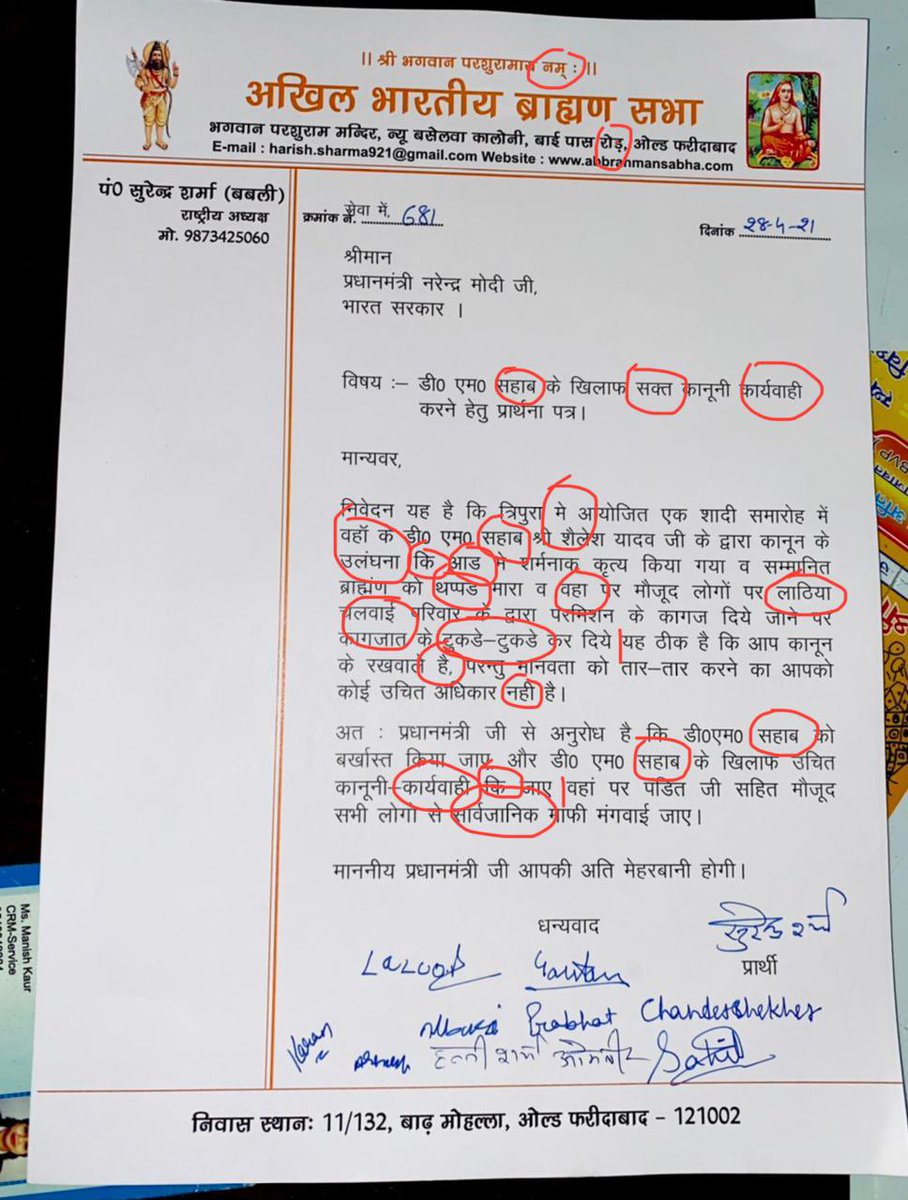 || श्री भगवान परशुरामाय नम् : ||
अखिल भारतीय ब्राह्मण सभा
भगवान परशुराम मन्दिर, न्यू बसेलवा कालोनी, बाई पास रोड़, ओल्ड फरीदाबाद
E-mail : harish.sharma921@gmail.com Website : www.abbrahmansabha.com
पं0 सुरेन्द्र शर्मा (बबली)
राष्ट्रीय अध्यक्ष
मो. 9873425060
सेवा में,
क्रमांक नं. 681
दिनांक 28-4-21
श्रीमान
प्रधानमंत्री नरेन्द्र मोदी जी,
भारत सरकार ।
विषय :– डी0 एम0 सहाब के खिलाफ सक्त कानूनी कार्यवाही
करने हेतु प्रार्थना पत्र।
मान्यवर,
निवेदन यह है कि त्रिपुरा मे आयोजित एक शादी समारोह में
वहॉ के डी0 एम0 सहाब श्री शैलेश यादव जी के द्वारा कानून के
उलंघना कि आड मे शर्मनाक कृत्य किया गया व सम्मानित
ब्राह्मंण को थप्पड मारा व वहा पर मौजूद लोगों पर लाठिया
चलवाई परिवार के द्वारा परमिशन के कागज दिये जाने पर
कागजात के टुकडे–टुकडे कर दिये यह ठीक है कि आप कानून
के रखवाले है, परन्तु मानवता को तार–तार करने का आपको
कोई उचित अधिकार नही है।
अत : प्रधानमंत्री जी से अनुरोध है कि डी0एम0 सहाब को
बर्खास्त किया जाए, और डी0 एम0 सहाब के खिलाफ उचित
कानूनी–कार्यवाही कि जाए वहां पर पंडित जी सहित मौजूद
सभी लोगो से सार्वजानिक माफी मंगवाई जाए।
माननीय प्रधानमंत्री जी आपकी अति मेहरबानी होगी।
धन्यवाद
प्रार्थी
Prabhat Chandershekher
Karan
Sahil
निवास स्थान: 11/132, बाढ़ मोहल्ला, ओल्ड फरीदाबाद - 121002
Ms. Manish Kaur
CRM-Service